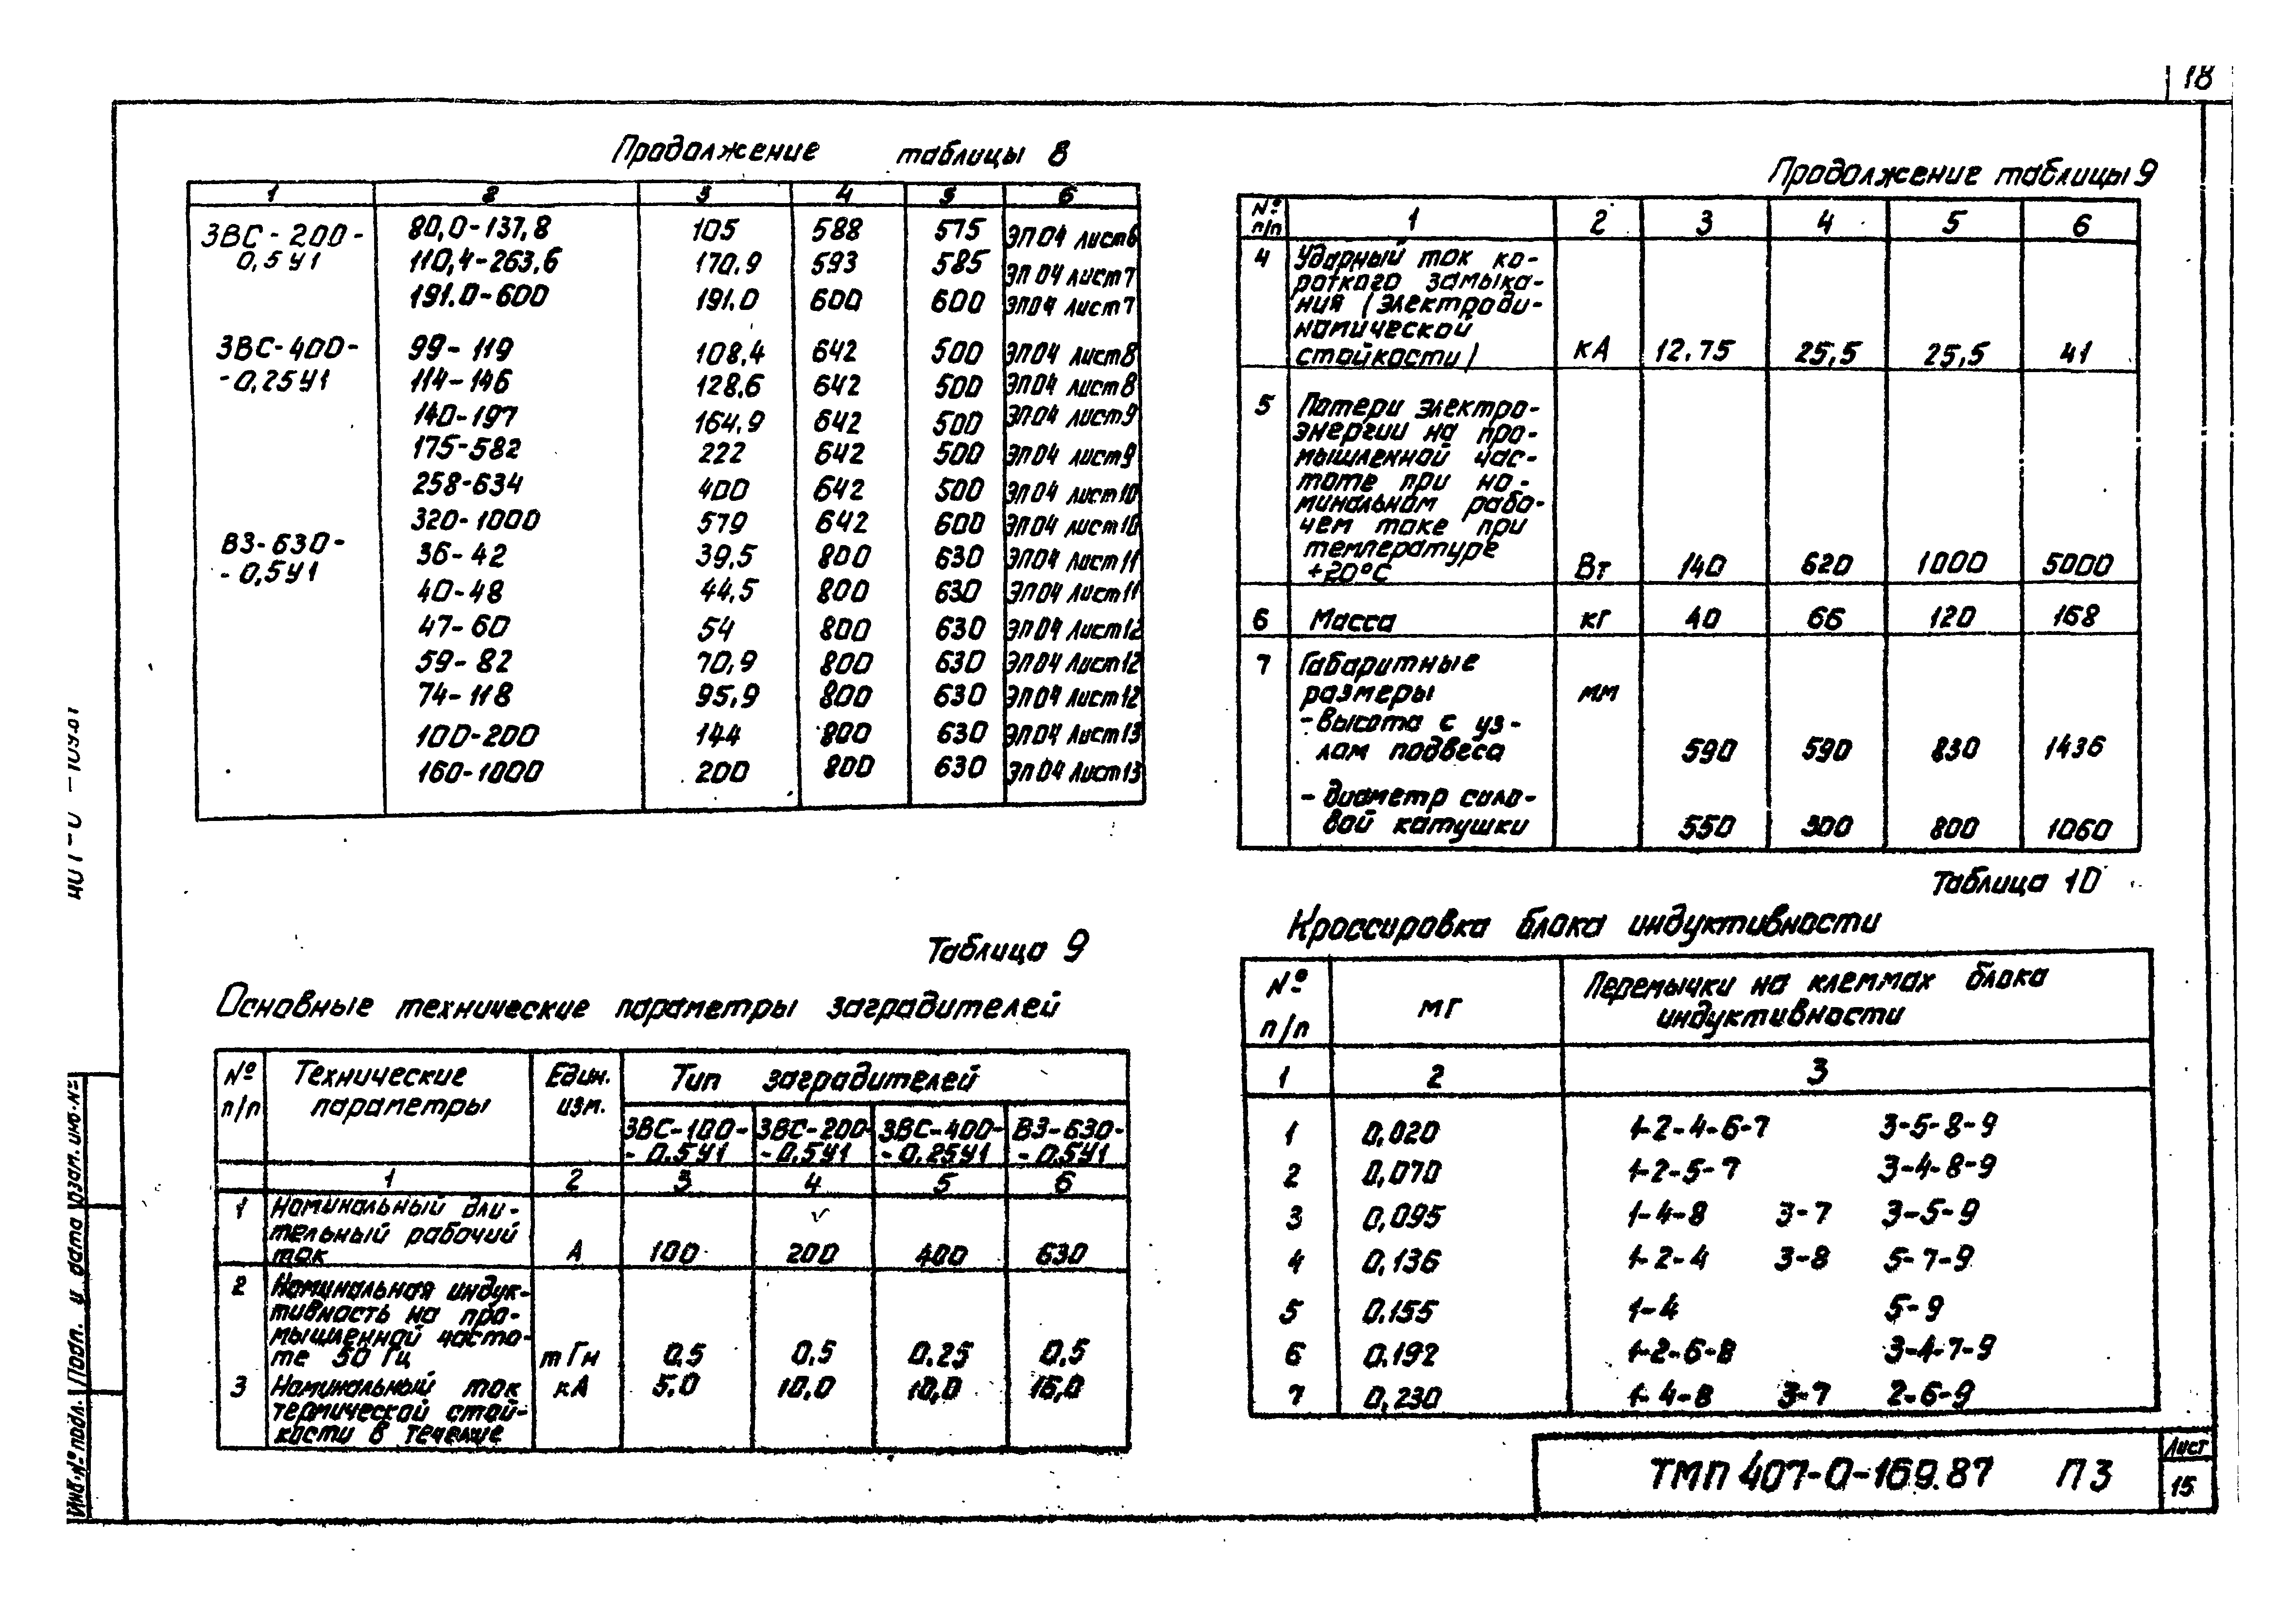 18
Продолжение таблицы 8
1 2 3 4 5 6
ЗВС-200- 80,0-137,8 105 588 575 ЭП04 Лист6
0,5У1 110,4-263,6 170,9 593 585 ЭП04 Лист7
191.0-600 191.0 600 600 ЭП04 Лист7
ЗВС-400- 99-119 108,4 642 500 ЭП04 Лист8
-0,25У1 114-146 128,6 642 500 ЭП04 Лист8
140-197 164,9 642 500 ЭП04 Лист9
175-582 222 642 500 ЭП04 Лист9
258-634 400 642 500 ЭП04 Лист10
320-1000 579 642 600 ЭП04 Лист10
ВЗ-630- 36-42 39,5 800 630 ЭП04 Лист11
-0,5У1 40-48 44,5 800 630 ЭП04 Лист11
47-60 54 800 630 ЭП04 Лист12
59-82 70,9 800 630 ЭП04 Лист12
74-118 95,9 800 630 ЭП04 Лист12
100-200 144 800 630 ЭП04 Лист13
160-1000 200 800 630 ЭП04 Лист13
Таблица 9
Основные технические параметры заградителей
№ Технические Един. Тип заградителей
п/п параметры изм.
ЗВС-100- ЗВС-200- ЗВС-400- ВЗ-630-
-0.5У1 -0.5У1 -0.25У1 -0.5У1
1 2 3 4 5 6
1 Номинальный дли-
тельный рабочий
ток А 100 200 400 630
2 Номинальная индук-
тивность на про-
мышленной часто-
те 50 Гц тГн 0.5 0,5 0.25 0,5
3 Номинальный ток кА 5,0 10,0 10,0 16,0
термической стой-
кости в течение
Продолжение таблицы 9
№ п/п 1 2 3 4 5 6
4 Ударный ток ко-
роткого замыка-
ния (электроди-
намической
стойкости) кА 12.75 25,5 25,5 41
5 Потери электро-
энергии на про-
мышленной час-
тоте при но-
минальном рабо-
чем токе при
температуре
+20°С Вт 140 620 1000 5000
6 Масса кг 40 66 120 168
7 Габаритные
размеры мм
-высота с уз-
лом подвеса 590 590 830 1436
-диаметр сило-
вой катушки 550 300 800 1060
Таблица 10
Кроссировка блока индуктивности
№ мГ Перемычки на клеммах блока
п/п индуктивности
1 2 3
1 0,020 1-2-4-6-7 3-5-8-9
2 0,070 1-2-5-7 3-4-8-9
3 0,095 1-4-8 3-7 3-5-9
4 0,136 1-2-4 3-8 5-7-9
5 0.155 1-4 5-9
6 0.192 1-2-6-8 3-4-7-9
7 0,230 1-4-8 3-7 2-6-9
ТМП 407-0-169.87 ПЗ
Лист
15
Инв.№ подл. Подп. и дата Взам.инв.№